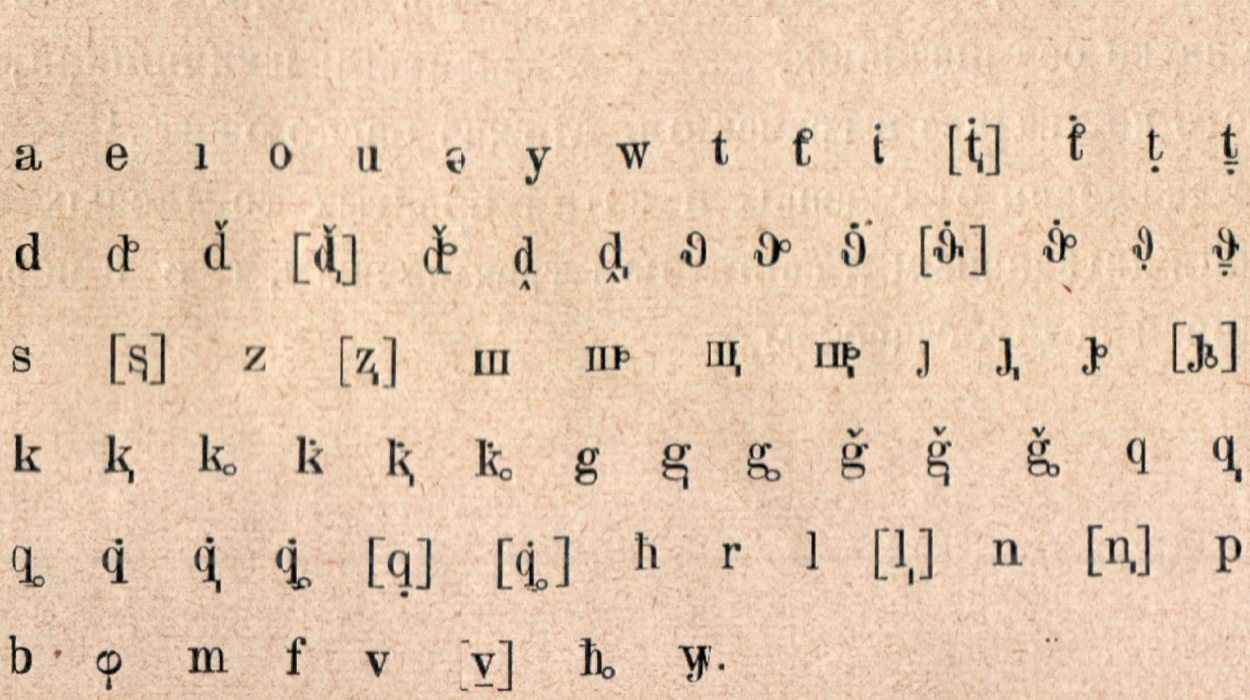 a e ı o u ə y w t tͦ ṫ [ṫ̡] ṫͦ ṭ ṭ̱
d dͦ ď [ď̡] ďͦ ḓ ḓ̡ ϑ ϑͦ ϑ̇ [ϑ̡̇] ϑ̇ͦ ϑ̣ ϑ̱̣
s [s̡] z [z̡] ш шͦ щ щͦ ȷ ȷ̡ ȷͦ [ȷ̡ͦ]
k k̡ k̥ k̇ k̡̇ k̥̇ g g̡ g̥ ǧ ǧ̡ ǧ̥ q q̡
q̥ q̇ q̡̇ q̥̇ [q̣] [q̥̇] ħ r l [l̡] n [n̡] p
b φ m f v [v̱] ħ̥ y̡.